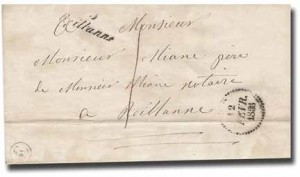 Roillanne
Monsieur
Monsieur Miane père
de Monsieur Miane notaire
a Roillanne
12
FEVR.